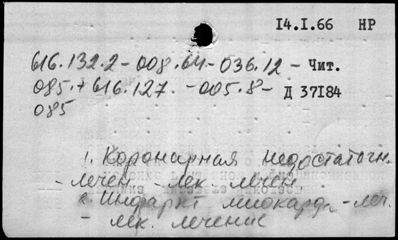 14.I.66 НР
616.132.2-008.64-036.12- Чит.
085.+616.127.-005.8- Д 37184
085
1. Коронарная недостаточн.
-лечен.-лек. лечен.
2. Инфаркт миокарда-леч.
-лек. лечение